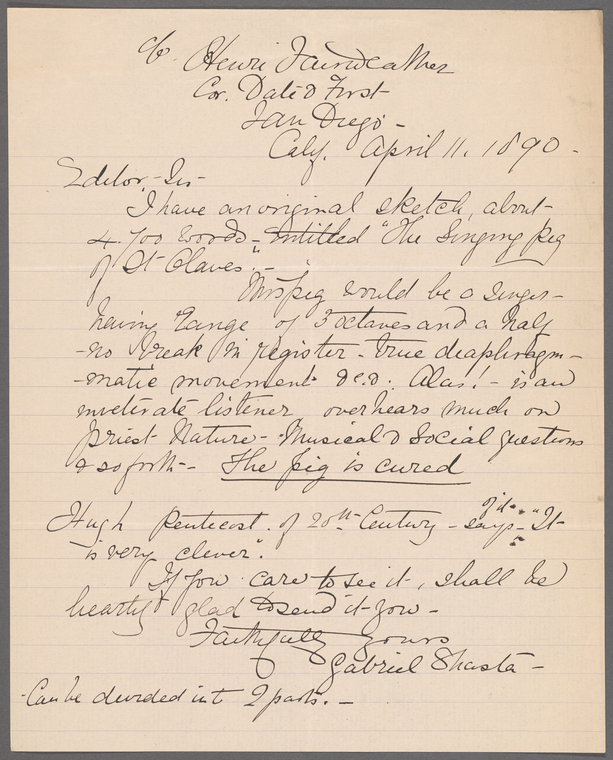 c/o Henri Fairweather
Cor. Date & First
San Diego -
Caly. April 11. 1890 -
Editor, - Sir -
I have an original sketch, about -
4.700 words - Entitled "The Singing pig
of St Olaves". -
This pig would be a singer -
having range of 3 octaves and a half
- no break in register - true diaphragm -
- matic movement &c. &. Alas! - is an
inveterate listener overhears much on
Priest - Nature - Musical & Social questions
& so forth - The pig is cured
Hugh Pentecost. of 20th Century - says of it - "It
is very clever".
If you care to see it, shall be
heartily glad to send it you -
Faithfully yours
Gabriel Shasta -
Can be divided int 2 parts. -